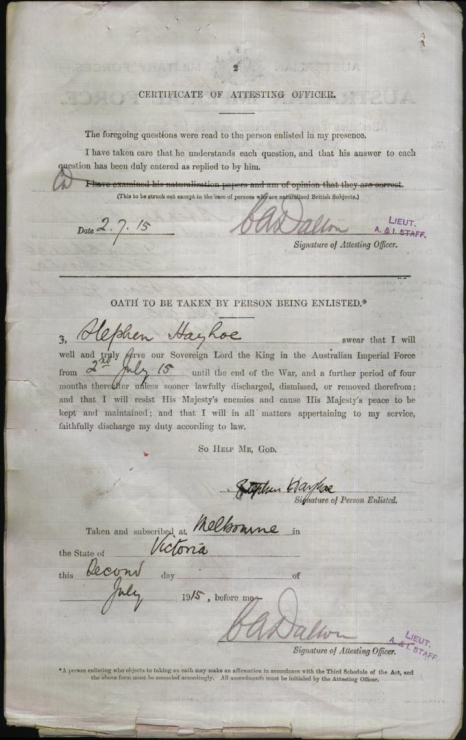 2
CERTIFICATE OF ATTESTING OFFICER.
The foregoing questions were read to the person enlisted in my presence.
I have taken care that he understands each question, and that his answer to each
question has been duly entered as replied to by him.
I have examined his naturalization papers and am of opinion that they are correct.
(This to be struck out except in the case of persons who are naturalised British Subjects.)
Date 2.7.15
CADalton LIEUT.
A. & I. STAFF.
Signature of Attesting Officer.
OATH TO BE TAKEN BY PERSON BEING ENLISTED.*
I, Stephen Hayhoe swear that I will
well and truly serve our Sovereign Lord the King in the Australian Imperial Force
from 2nd July 15 until the end of the War, and a further period of four
months thereafter unless sooner lawfully discharged, dismissed, or removed therefrom;
and that I will resist His Majesty's enemies and cause His Majesty's peace to be
kept and maintained; and that I will in all matters appertaining to my service,
faithfully discharge my duty according to law.
SO HELP ME, GOD.
Stephen Hayhoe
Signature of Person Enlisted.
Taken and subscribed at Melbourne in
the State of Victoria
this Second day of
July 1915, before me—
CADalton LIEUT.
A. & I. STAFF
Signature of Attesting Officer.
*A person enlisting who objects to taking an oath may make an affirmation in accordance with the Third Schedule of the Act, and
the above form must be amended accordingly. All amendments must be initialed by the Attesting Officer.